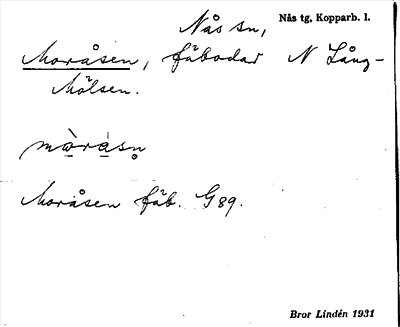 Nås sn, Nås tg, Kopparb. l.
Moråsen, fäbodar N Lång-
Mölsen.
mò̱ra̱sn̥
Moråsen fäb. G89.
Bror Lindén 1931